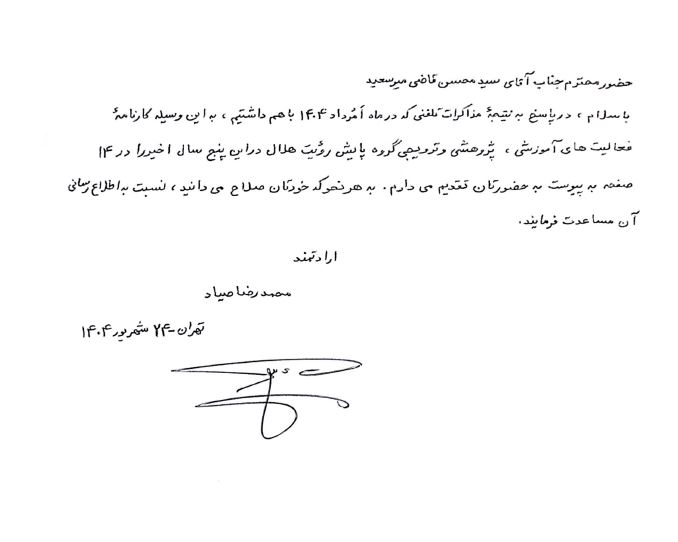 حضور محترم جناب آقای سید محسن قاضی میرسعید
با سلام ، در پاسخ به نتیجهٔ مذاکرات تلفنی که در ماه اَمُرداد ۱۴۰۴ با هم داشتیم ، به این وسیله کارنامهٔ
فعالیت های آموزشی ، پژوهشی و ترویجی گروه پایش رؤیت هلال در این پنج سال اخیر را در ۱۴
صفحه به پیوست به حضورتان تقدیم می دارم . به هر نحو که خودتان صلاح می دانید ، نسبت به اطلاع رسانی
آن مساعدت فرمایند .
ارادتمند
محمدرضا صیاد
تهران - ۲۴ شهریور ۱۴۰۴